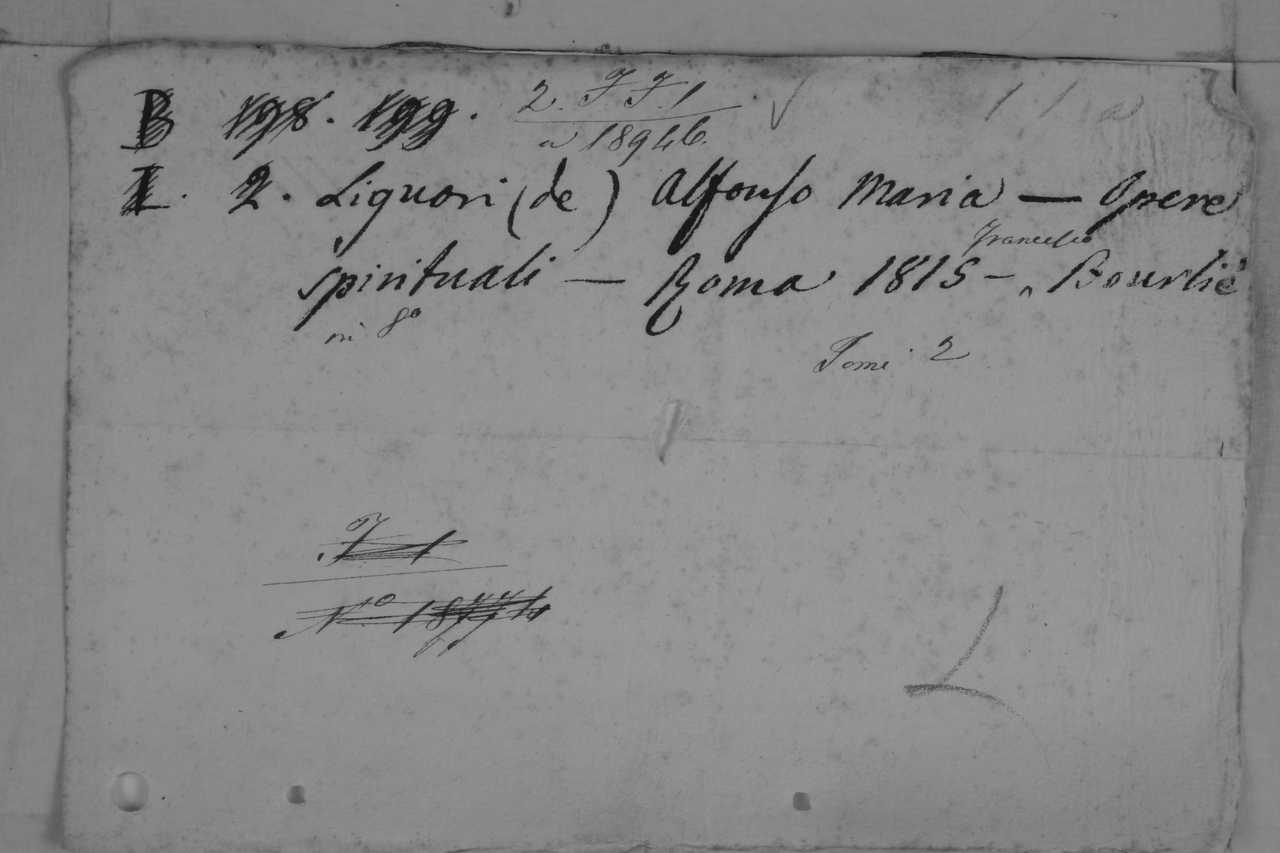 B 198. 199. 2. F F. 1
a 18946.
I. 2. Liguori (de) Alfonso Maria — Opere
Francesco
spirituali — Roma 1815 – Bourlié
in 8°
Tomi 2
F 1
N.° 18774
L